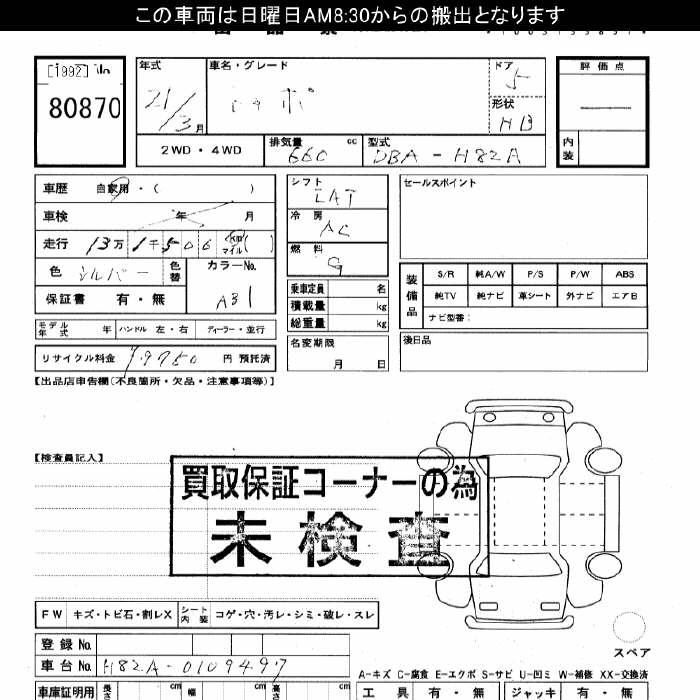 この車両は日曜日AM8:30からの搬出となります
[1992]
80870
年式 21/3月
車名・グレード トッポ
ドア 5
形状 HB
評価点
内装
2WD・4WD
排気量 660 cc
型式 DBA-H82A
車歴 自家用・( )
車検 年 月
走行 13万1千506 km マイル( )
色 シルバー 色替
カラーNo. A31
保証書 有・無
シフト LAT
冷房 AC
燃料 G
乗車定員 名
積載量 kg
総重量 kg
名変期限 月 日
セールスポイント
装備品 S/R 純A/W P/S P/W ABS
純TV 純ナビ 革シート 外ナビ エアB
ナビ型番:
後日品
モデル年式 年 ハンドル 左・右 ディーラー・並行
リサイクル料金 円 預託済
【出品店申告欄(不良箇所・欠品・注意事項等)】
【検査員記入】
買取保証コーナーの為
未検査
FW キズ・トビ石・割レX シート内装 コゲ・穴・汚レ・シミ・破レ・スレ
登録No.
車台No. H82A-0109497
スペア
A-キズ C-腐食 E-エクボ S-サビ U-凹ミ W-補修 XX-交換済
車庫証明用 長さ cm 幅 cm 高さ cm
工具 有・無 ジャッキ 有・無